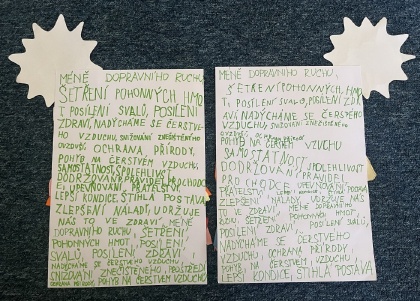 MÉNĚ DOPRAVNÍHO RUCHU
ŠETŘENÍ POHONNÝCH HMO
T POSÍLENÍ SVALŮ, POSÍLENÍ
ZDRAVÍ, NADÝCHÁME SE ČERSTVÉ-
HO VZDUCHU, SNIŽOVÁNÍ ZNEČIŠTĚNÉHO
OVZDUŠÍ, OCHRANA PŘÍRODY,
POHYB NA ČERSTVÉM VZDUCHU,
SAMOSTATNOST, SPOLEHLIVOST
DODRŽOVÁNÍ PRAVIDEL PROCHODC
E, UPEVŇOVÁNÍ, PŘÁTELSTVÍ,
LEPŠÍ KONDICE, ŠTÍHLÁ POSTAVA
ZLEPŠENÍ NÁLADY, UDRŽUJE
NÁS TO VE ZDRAVÍ, MÉNĚ
DOPRAVNÍHO RUCHU, ŠETŘENÍ
POHONNÝCH HMOT, POSÍLENÍ
SVALŮ, POSÍLENÍ ZDRAVÍ,
NADÝCHÁME SE ČERSTVÉHO VZDUCHU,
SNIŽOVÁNÍ ZNEČIŠTĚNÉHO
OCHRANA PŘÍRODY POHYB NA ČERSTVÉM VZDUCHU
MÉNĚ DOPRAVNÍHO RUCHU,
ŠETŘENÍ POHONNÝCH HMO
T POSÍLENÍ SVALŮ, POSÍLENÍ ZDR
AVÍ, NADÝCHÁME SE ČERSTVÉHO
VZDUCHU, SNIŽOVÁNÍ ZNEČIŠTĚNÉHO
OVZDUŠÍ, OCHRANA PŘÍRODY
POHYB NA ČERSTVÉM VZUCHU
SAMOSTATNOST,
DODRŽOVÁNÍ PRAVIDEL
PRO CHODCE UPEVŇOVÁNÍ
PŘÁTELSTVÍ LEPŠÍ KONDICE, POSTAVA
ZLEPŠENÍ NÁLADY, UDRŽUJE NÁS
TO VE ZDRAVÍ, MÉNĚ DOPRAVNÍHO
POHONNÝCH HMOT,
POSÍLENÍ ZDRAVÍ, POSÍLENÍ SVALŮ,
NADÝCHÁME SE ČERSTVÉHO
VZDUCHU OCHRANA PŘÍRODY
POHYB NA ČERSTVÉM, VZDUCHU,
LEPŠÍ KONDICE, ŠTÍHLÁ POSTAVA